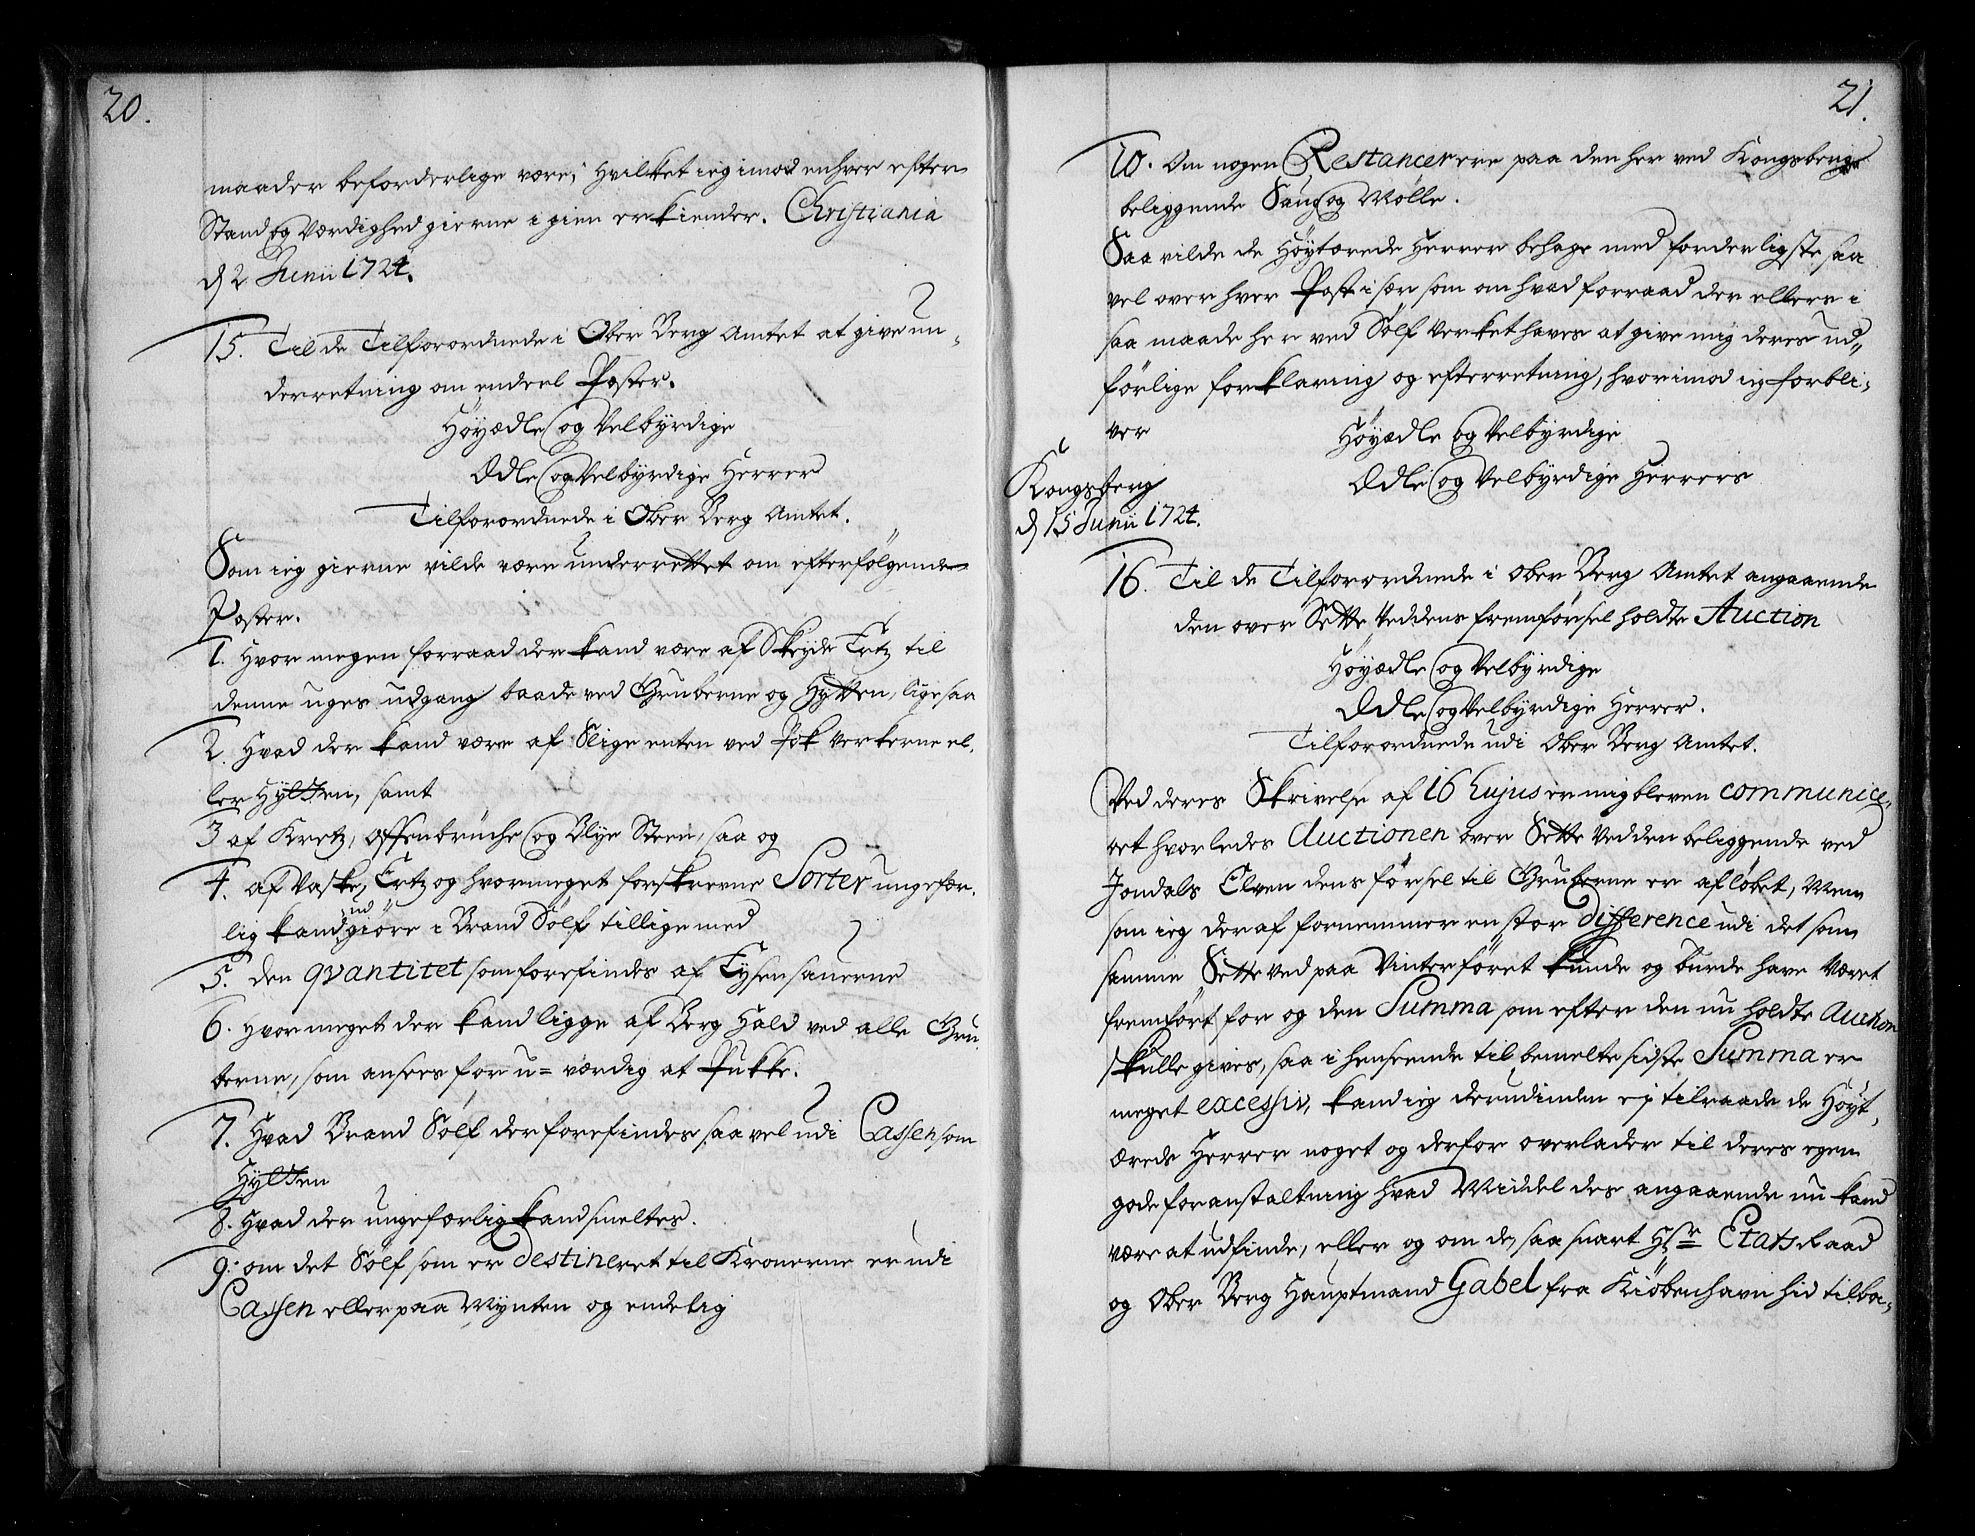 20.
maader beforderlige være; hvilket ieg imod enhver efter
Stand og Værdighed gierne igien erkiender. Christiania
d 2 Junii 1724.
15. Til de Tilforordnede i Ober Berg Amtet at give un-
derretning om endeel Poster.
Höyædle og Velbÿrdige
Ædle og Velbÿrdige Herrer
Tilforordnede i Ober Berg Amtet.
Som ieg gierne vilde være underrettet om efterfölgende
Poster.
1. Hvor megen forraad der kand være af Skeyde Ertz til
denne uges udgang baade ved Gruberne og Hÿtten, lige saa
2. Hvad der kand være af Slige enten ved Pok Verkerne el,
ler Hÿtten, samt
3 af Kretz, offenbrüche og Blÿe Steen, saa og
4. af Vaske Ertz og hvormeget forskrevne Sorter ungefær,
lig kand udgiöre i Brand Sölf tillige med
5. den qvantitet som forefindes af Eÿsensauerne
6. Hvor meget der kand ligge af Berg Hald ved alle Gru,
berne, som ansees for u=værdig at Pukke.
7. Hvad Brand Sölf der forefindes saa vel udi Cassen som
Hÿtten
8. Hvad der ungefærlig kand smeltes.
9. om det Sölf som er destineret til Kronerne er udi
Cassen eller paa Mÿnten og endelig
21.
10. Om nogen Restancer ere paa den her ved Kongsberg
beliggende Saug og Mölle.
Saa vilde de Höÿtærede Herrer behage med forderligste saa
vel over hver Post i sær som om hvad forraad der ellers i
saa maade her ved Sölf Verket haves at give mig deres ud,,
förlige forklaring og efterretning, hvorimod ieg forbli-
ver
Höyædle og Velbÿrdige
Ædle og Velbÿrdige Herrers
Kongsberg
d 15 Junii 1724.
16. Til de Tilforordnede i Ober Berg Amtet angaaende
den over Sette Veddens fremförsel holdte Auction
Höyædle og Velbÿrdige
Ædle og Velbÿrdige Herrer.
Tilforordnede udi Ober Berg Amtet.
Ved deres Skrivelse af 16 hujus er mig bleven communice,
ret hvorledes Auctionen over Sette Vedden beliggende ved
Jondals Elven dens försel til Gruberne er aflöbet, Men
som ieg deraf fornemmer en stor difference udi det som
samme Sette Ved paa Vinterföret kunde og burde have Været
fremfört for og den Summa som efter den nu holdte Auction
skulle gives, saa i henseende til bemelte sidste Summa er
meget excessiv, kand ieg derudinden eÿ tilraade de Höÿt,
ærede Herrer noget og derfor overlader til deres egen
gode foranstaltning hvad Middel des angaaende nu kand
være at udfinde, eller og om de, saa snart Hr Etats Raad
og Ober Berg Hauptmand Gabel fra Kiöbenhavn hid tilba-